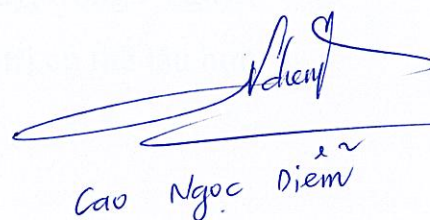 Ndiễm
Cao Ngọc Diễm